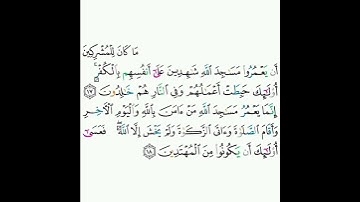 مَا كَانَ لِلْمُشْرِكِينَ
أَن يَعْمُرُوا۟ مَسَـٰجِدَ ٱللَّهِ شَـٰهِدِينَ عَلَىٰٓ أَنفُسِهِم بِٱلْكُفْرِ ۚ
أُو۟لَـٰٓئِكَ حَبِطَتْ أَعْمَـٰلُهُمْ وَفِى ٱلنَّارِ هُمْ خَـٰلِدُونَ ١٧
إِنَّمَا يَعْمُرُ مَسَـٰجِدَ ٱللَّهِ مَنْ ءَامَنَ بِٱللَّهِ وَٱلْيَوْمِ ٱلْـَٔاخِرِ
وَأَقَامَ ٱلصَّلَوٰةَ وَءَاتَى ٱلزَّكَوٰةَ وَلَمْ يَخْشَ إِلَّا ٱللَّهَ ۖ فَعَسَىٰٓ
أُو۟لَـٰٓئِكَ أَن يَكُونُوا۟ مِنَ ٱلْمُهْتَدِينَ ١٨